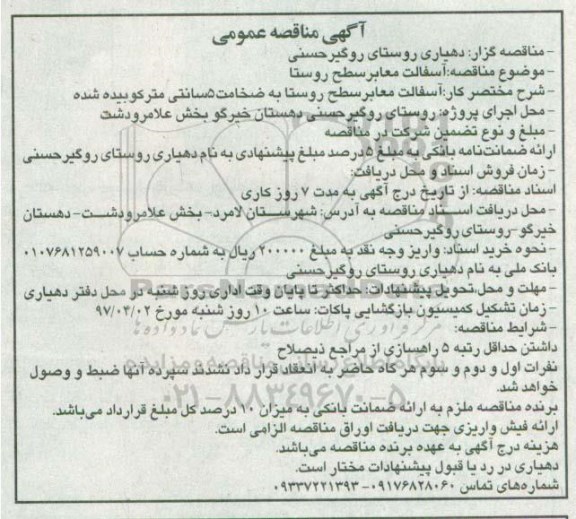 آگهی مناقصه عمومی
- مناقصه گزار: دهیاری روستای روگیرحسنی
- موضوع مناقصه:آسفالت معابرسطح روستا
- شرح مختصر کار:آسفالت معابرسطح روستا به ضخامت۵سانتی مترکوبیده شده
- محل اجرای پروژه: روستای روگیرحسنی دهستان خیرگو بخش علامرودشت
- مبلغ و نوع تضمین شرکت در مناقصه
ارائه ضمانت‌نامه بانکی به مبلغ ۵درصد مبلغ پیشنهادی به نام دهیاری روستای روگیرحسنی
- زمان فروش اسناد و محل دریافت:
اسناد مناقصه: از تاریخ درج آگهی به مدت ۷ روز کاری
- محل دریافت اسناد مناقصه به آدرس: شهرستان لامرد- بخش علامرودشت- دهستان
خیرگو-روستای روگیرحسنی
- نحوه خرید اسناد: واریز وجه نقد به مبلغ ۲۰۰۰۰۰ ریال به شماره حساب ۰۱۰۷۶۸۱۲۵۹۰۰۷
بانک ملی به نام دهیاری روستای روگیرحسنی
- مهلت و محل تحویل پیشنهادات: حداکثر تا پایان وقت اداری روز شنبه در محل دفتر دهیاری
- زمان تشکیل کمیسیون بازگشایی پاکات: ساعت ۱۰ روز شنبه مورخ ۹۷/۰۲/۰۲
- شرایط مناقصه:
داشتن حداقل رتبه ۵ راهسازی از مراجع ذیصلاح
نفرات اول و دوم و سوم هر گاه حاضر به انعقاد قرار داد نشدند سپرده آنها ضبط و وصول
خواهد شد.
برنده مناقصه ملزم به ارائه ضمانت بانکی به میزان ۱۰ درصد کل مبلغ قرارداد می‌باشد.
ارائه فیش واریزی جهت دریافت اوراق مناقصه الزامی است.
هزینه درج آگهی به عهده برنده مناقصه می‌باشد.
دهیاری در رد یا قبول پیشنهادات مختار است.
شماره‌های تماس ۰۹۱۷۶۸۲۸۰۶۰-۰۹۳۳۷۲۲۱۳۹۳
۰۲۱-۸۸۳۴۹۶۷۰-۵